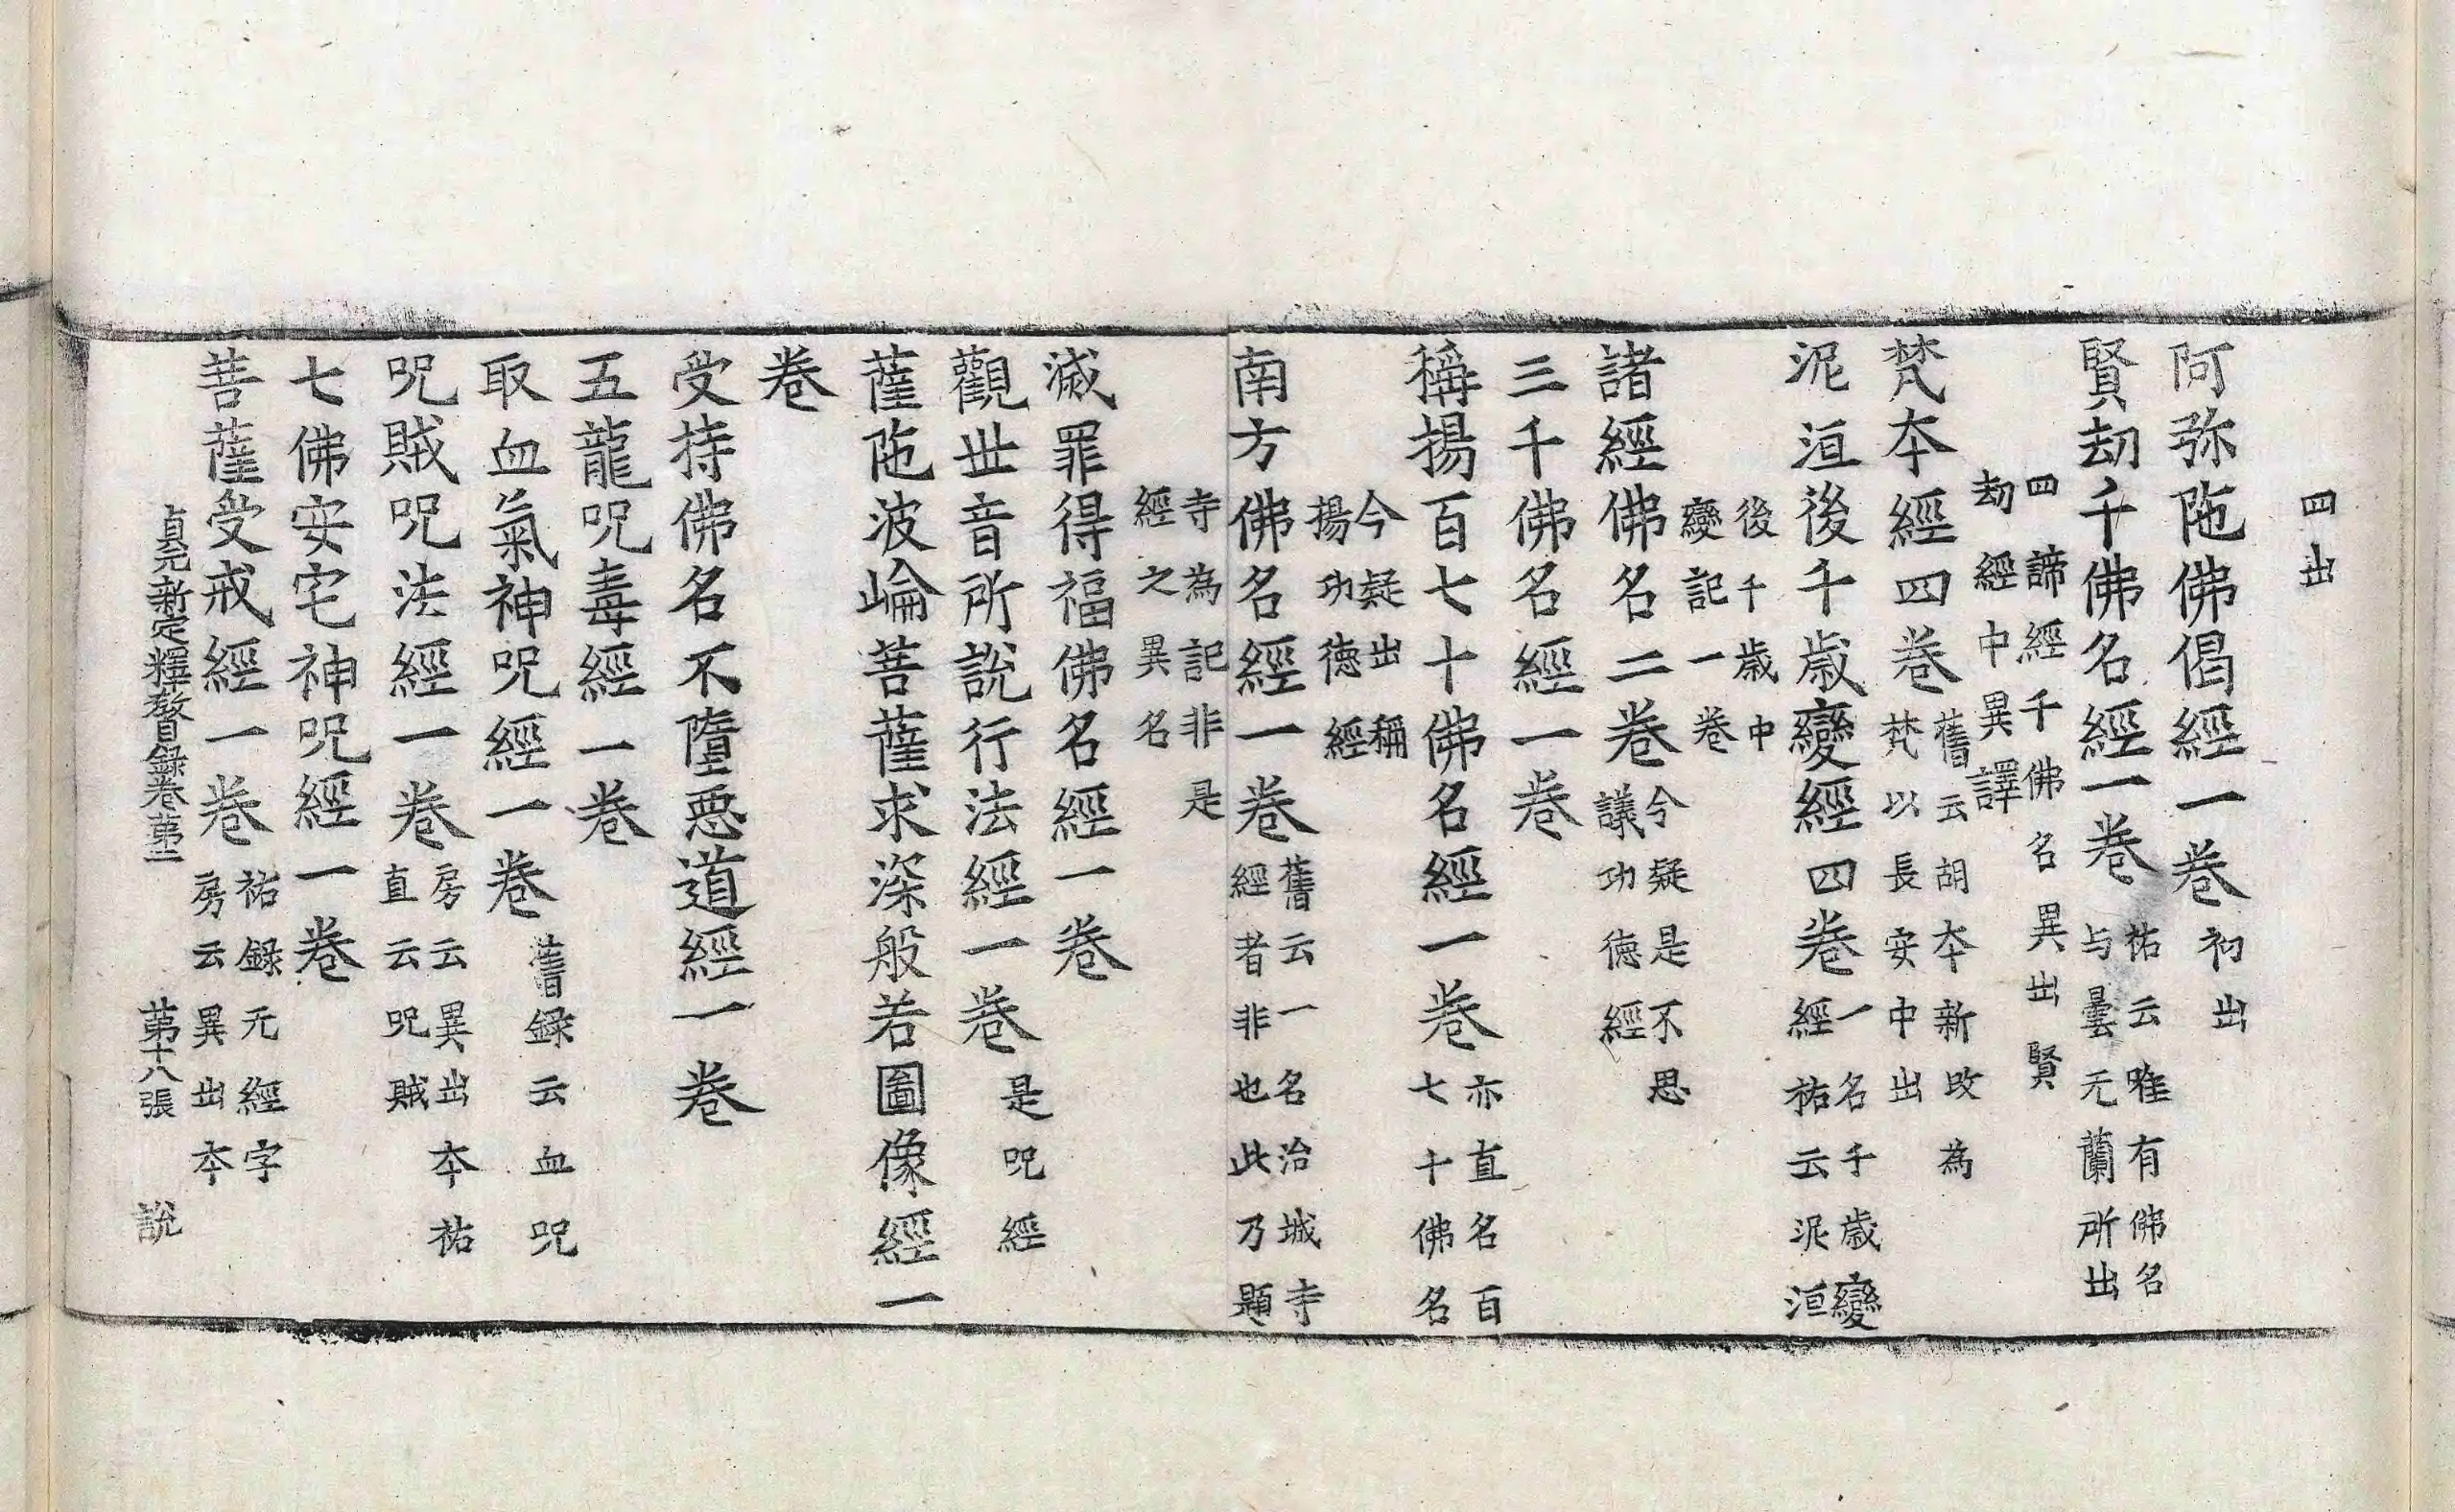 四出
阿弥陁佛偈經一卷初出
賢劫千佛名經一卷祐云唯有佛名
与曇无蘭所出
四諦經千佛名異出賢
劫經中異譯
梵夲經四卷舊云胡夲新改為
梵以長安中出
泥洹後千歲變經四卷一名千歲變
經祐云泥洹
後千歲中
變記一卷
諸經佛名二卷今疑是不思
議功德經
三千佛名經一卷
稱揚百七十佛名經一卷亦直名百
七十佛名
今疑出稱
揚功德經
南方佛名經一卷舊云一名治城寺
經者非也此乃題
寺為記非是
經之異名
滅罪得福佛名經一卷
觀世音所說行法經一卷是呪經
薩陁波崘菩薩求深般若圖像經一
卷
受持佛名不墮惡道經一卷
五龍呪毒經一卷
取血氣神呪經一卷舊録云血呪
呪賊呪法經一卷房云異出夲祐
直云呪賊
七佛安宅神呪經一卷
菩薩受戒經一卷祐録无經字
房云異出夲
貞元新定釋教目録卷苐二 苐十八張 說